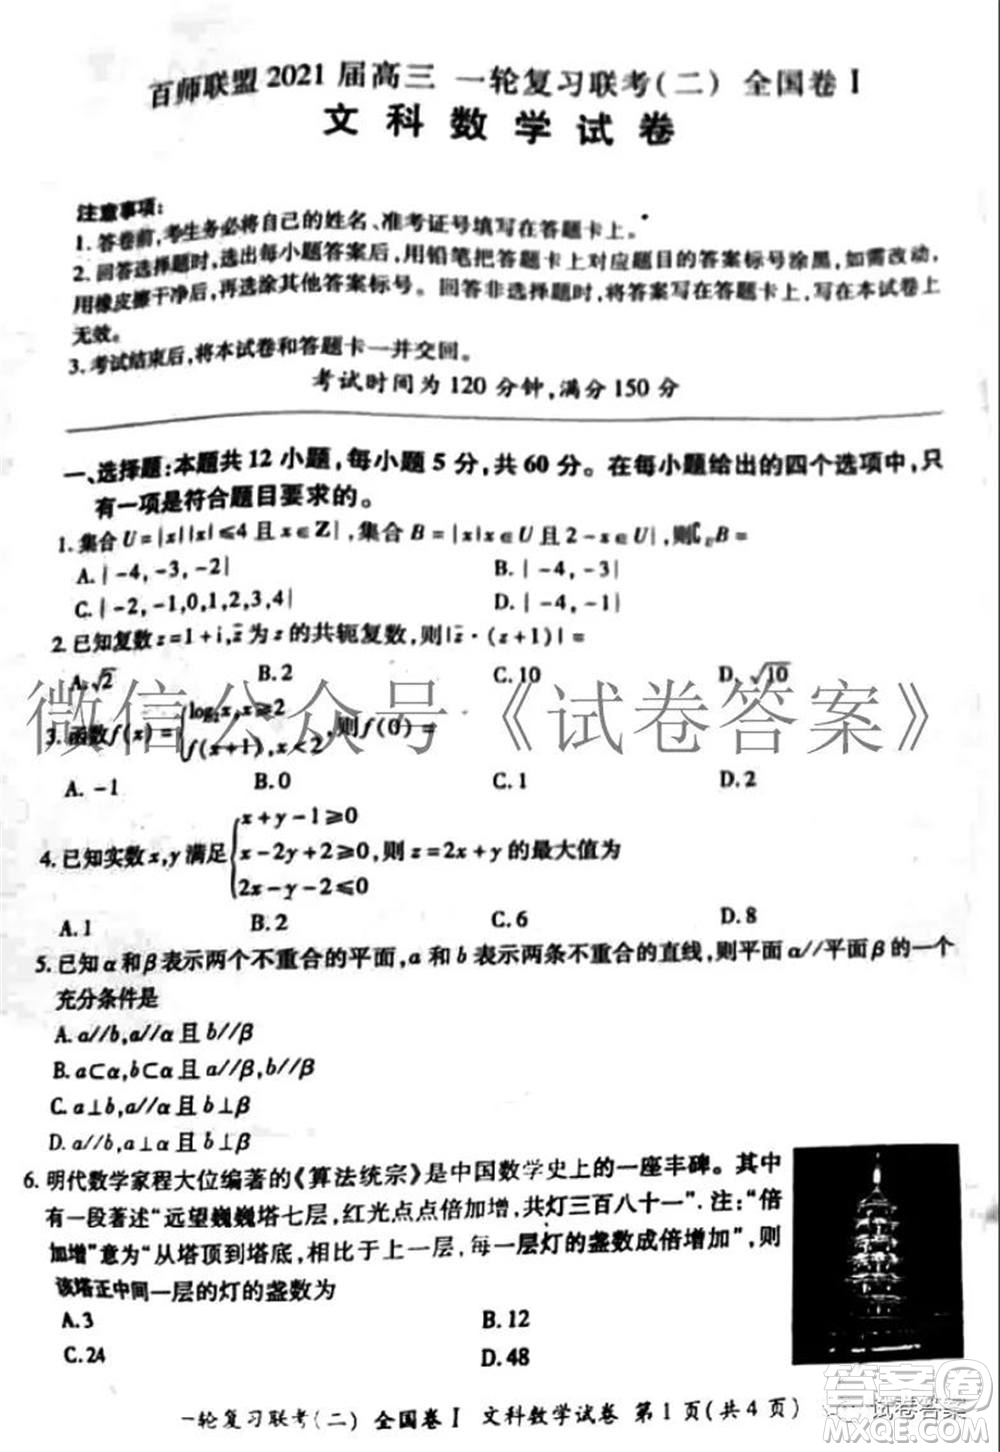 百师联盟 2021 届高三 一轮复习联考(二) 全国卷 I
文科数学试卷
注意事项:
1. 答卷前,考生务必将自己的姓名、准考证号填写在答题卡上。
2. 回答选择题时,选出每小题答案后,用铅笔把答题卡上对应题目的答案标号涂黑,如需改动,
用橡皮擦干净后,再选涂其他答案标号。回答非选择题时,将答案写在答题卡上,写在本试卷上
无效。
3. 考试结束后,将本试卷和答题卡一并交回。
考试时间为 120 分钟,满分 150 分
一、选择题:本题共 12 小题,每小题 5 分,共 60 分。在每小题给出的四个选项中,只
有一项是符合题目要求的。
1. 集合 U={x||x|≤4 且 x∈Z},集合 B={x|x∈U 且 2-x∈U},则∁UB=
A. {-4,-3,-2} B. {-4,-3}
C. {-2,-1,0,1,2,3,4} D. {-4}
2. 已知复数 z=1+i,z̄ 为 z 的共轭复数,则|z̄·(z+1)|=
A. √2 B. 2 C. 10 D. √10
3. 函数 f(x)={log₂x,x≥2
f(x+1),x<2,则 f(0)=
A. -1 B. 0 C. 1 D. 2
4. 已知实数 x,y 满足{x+y-1≥0
x-2y+2≥0,则 z=2x+y 的最大值为
2x-y-2≤0
A. 1 B. 2 C. 6 D. 8
5. 已知 α 和 β 表示两个不重合的平面,a 和 b 表示两条不重合的直线,则平面 α//平面 β 的一个
充分条件是
A. a//b,a//α 且 b//β
B. a⊂α,b⊂α 且 a//β,b//β
C. a⊥b,a//α 且 b⊥β
D. a//b,a⊥α 且 b⊥β
6. 明代数学家程大位编著的《算法统宗》是中国数学史上的一座丰碑。其中
有一段著述“远望巍巍塔七层,红光点点倍加增,共灯三百八十一”. 注:“倍
加增”意为“从塔顶到塔底,相比于上一层,每一层灯的盏数成倍增加”,则
该塔正中间一层的灯的盏数为
A. 3 B. 12
C. 24 D. 48
一轮复习联考(二) 全国卷 I 文科数学试卷 第 1 页(共 4 页)
微信公众号《试卷答案》
答案圈
试卷答案